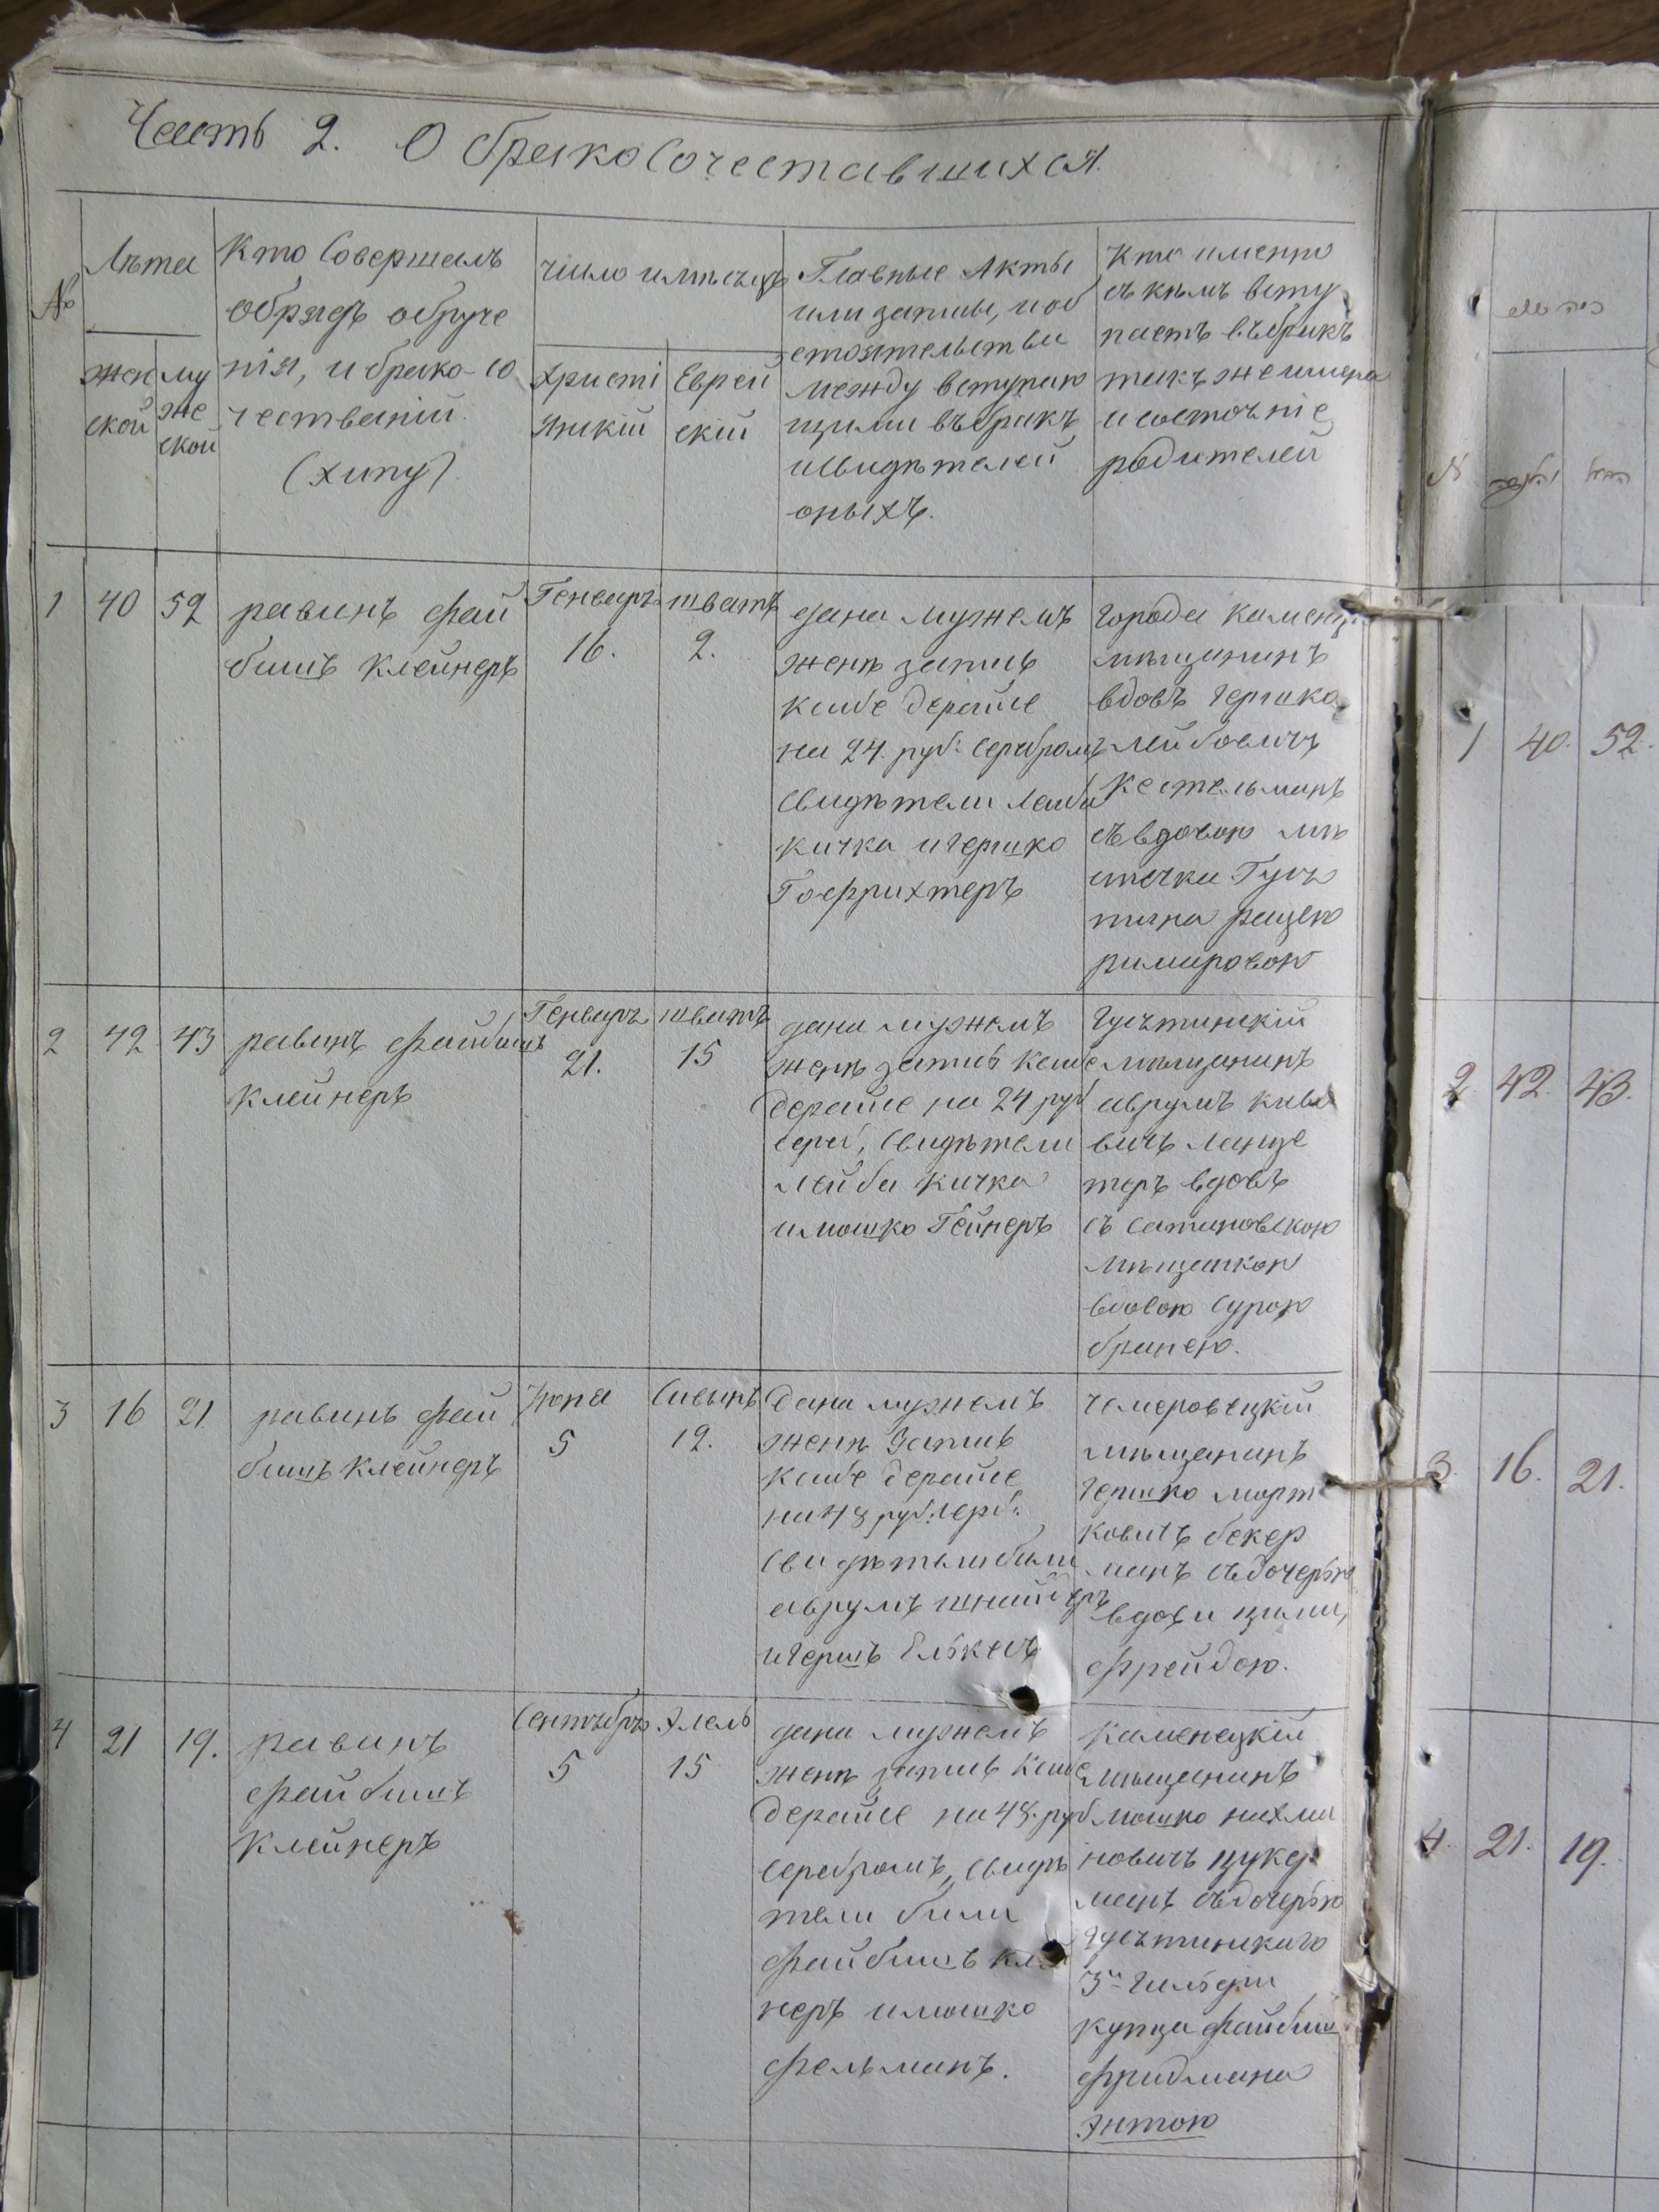 Часть 2. О бракосочетавшихся.
№
Лѣта
жен
ской
му
же
ской
Кто Совершалъ
обрядъ обруче
нія, и брако-со
чествании
(хипу)
число и мѣсецъ
Христі
янскій
Еврей
скій
Главные Акты
или записи, и об
стоятельствы
между вступаю
щими въ бракъ
и свидѣтелей
оныхъ.
Кто именно
съ кѣмъ всту
паетъ въ бракъ
такъ же имена
и состояніе
родителей
1
40
52
равинъ фай
бишъ клейнеръ
Генваръ
16.
шватъ
2.
дана мужемъ
женѣ запись
ксибе дерайсе
на 24. руб: серебромъ
Свидѣтели лейба
кичка и гершко
Гофрихтеръ
города каменца
мѣщанинъ
вдовъ гершко
лейбовичъ
кестельманъ
съ вдовою мѣ
стечка Гусѣ
тина
2
42
43
равинъ файбишъ
клейнеръ
Генваръ
21.
шватъ
15
дана мужемъ
женѣ запись ксибе
дерайсе на 24 руб
сереб, Свидѣтели
лейба кичка
и мошко Гейнеръ
гусѣтинскій
мѣщанинъ
аврумъ
вичъ
теръ вдовъ
съ сатановскою
мѣщанкою
вдовою сурою
бранею.
3
16
21
равинъ фай
бишъ клейнеръ
Июна
5
Сивинъ
19.
Дана мужемъ
женѣ Запись
ксибе дерайсе
на 48 руб: сереб:
Свидѣтели били
аврумъ шнайдеръ
и гершъ Елькесъ
чемеровецкій
мѣщанинъ
гершко морт
ковичъ бекер
манъ съ дочерью
вдови цили,
фрейдою.
4
21
19.
равинъ
файбишъ
клейнеръ
Сентѣбръ
5
Элель
15
дана мужемъ
женѣ запись ксибе
дерайсе на 48. руб
серебромъ, Свидѣ
тели били
файбишъ клей
неръ и мошко
фельманъ.
каменецкій
мѣщанинъ
мошко нахма
новичъ цукер
манъ съ дочерью
гусѣтинскаго
3й гильдіи
купца файбиша
фридмана
Энтою
№
1
40.
52.
2
42.
43.
3.
16.
21.
4.
21.
19.